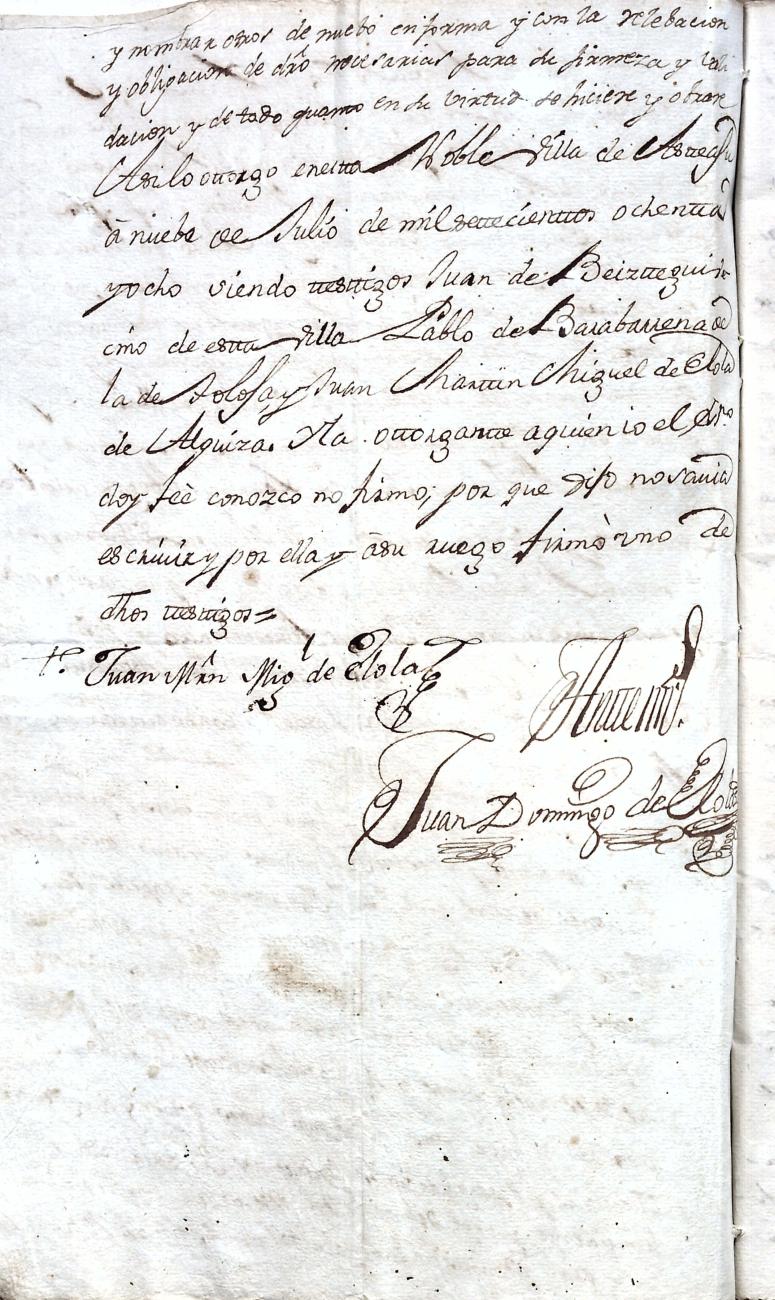 y nombrar otros de nuebo en forma y con la relebacion
y obligacion de dro necesarias para su firmeza y vali
dacion y de todo quanto en su virtud se hiciere y obrare
Asi lo ottorgo en estta Noble Villa de Asteasu
à nuebe de Julio de mil settecienttos ochentta
y ocho siendo testtigos Juan de Beiztegui ve
cino de estta Villa Pablo de Baiabarrena de
la de Tolosa, y Juan Marttin Miguel de Elola
de Alquiza. Y la ottorgantte a quien io el Esno
doy feè conozco no firmo, por que dijo no savia
escriuir y por ella y à su ruego firmò vno de
dhos testtigos =
to. Juan Mrn Migl de Elola
Antte mi.
Juan Domingo de Elola